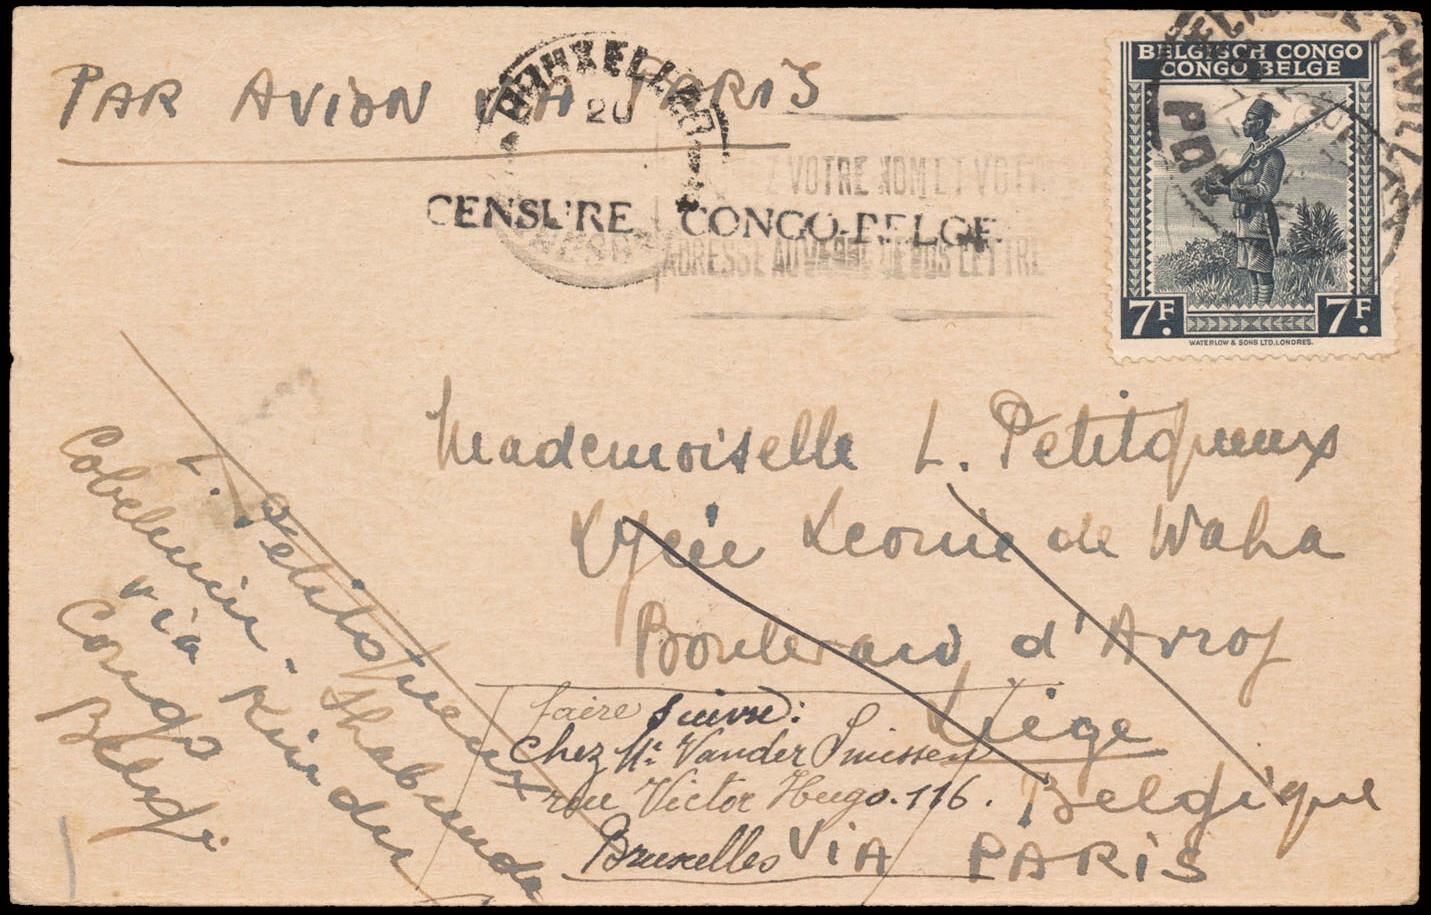 PAR AVION VIA PARIS
BRUXELLES
20
VOTRE NOM ET VOTRE
ADRESSE AU VERSO DE VOS LETTRES
CENSURE CONGO-BELGE
BELGISCH CONGO
CONGO BELGE
7F. 7F.
WATERLOW & SONS LTD. LONDRES.
Mademoiselle L. Petitqueux
Lycée Léonie de Waha
Boulevard d'Avroy
Liège
Belgique
VIA PARIS
faire suivre:
Chez Mr Vander Smissen
rue Victor Hugo. 116.
Bruxelles
L. Petitqueux
Cobelmin. Shabunda
via Kindu
Congo
Belge